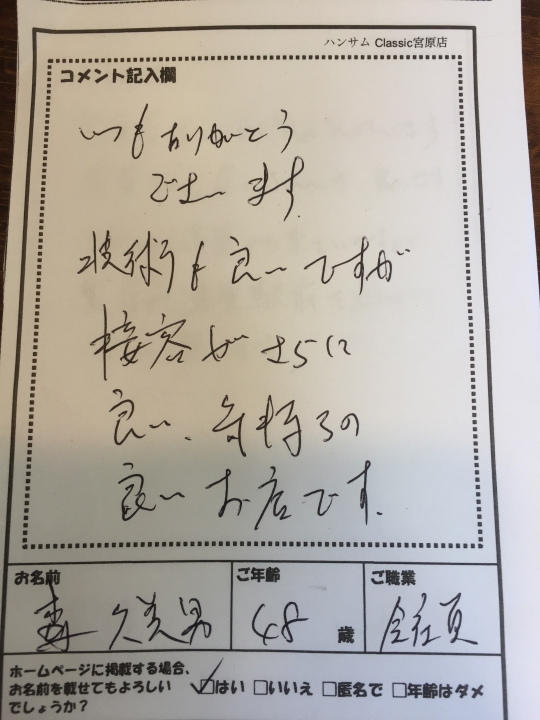 ハンサム Classic宮原店
コメント記入欄
いつもありがとう
ございます
技術も良いですが
接客がさらに
良い、気持ちの
良いお店です。
お名前
ご年齢
ご職業
久美男
48 歳
会社員
ホームページに掲載する場合、
お名前を載せてもよろしい
でしょうか?
☑はい □いいえ □匿名で □年齢はダメ